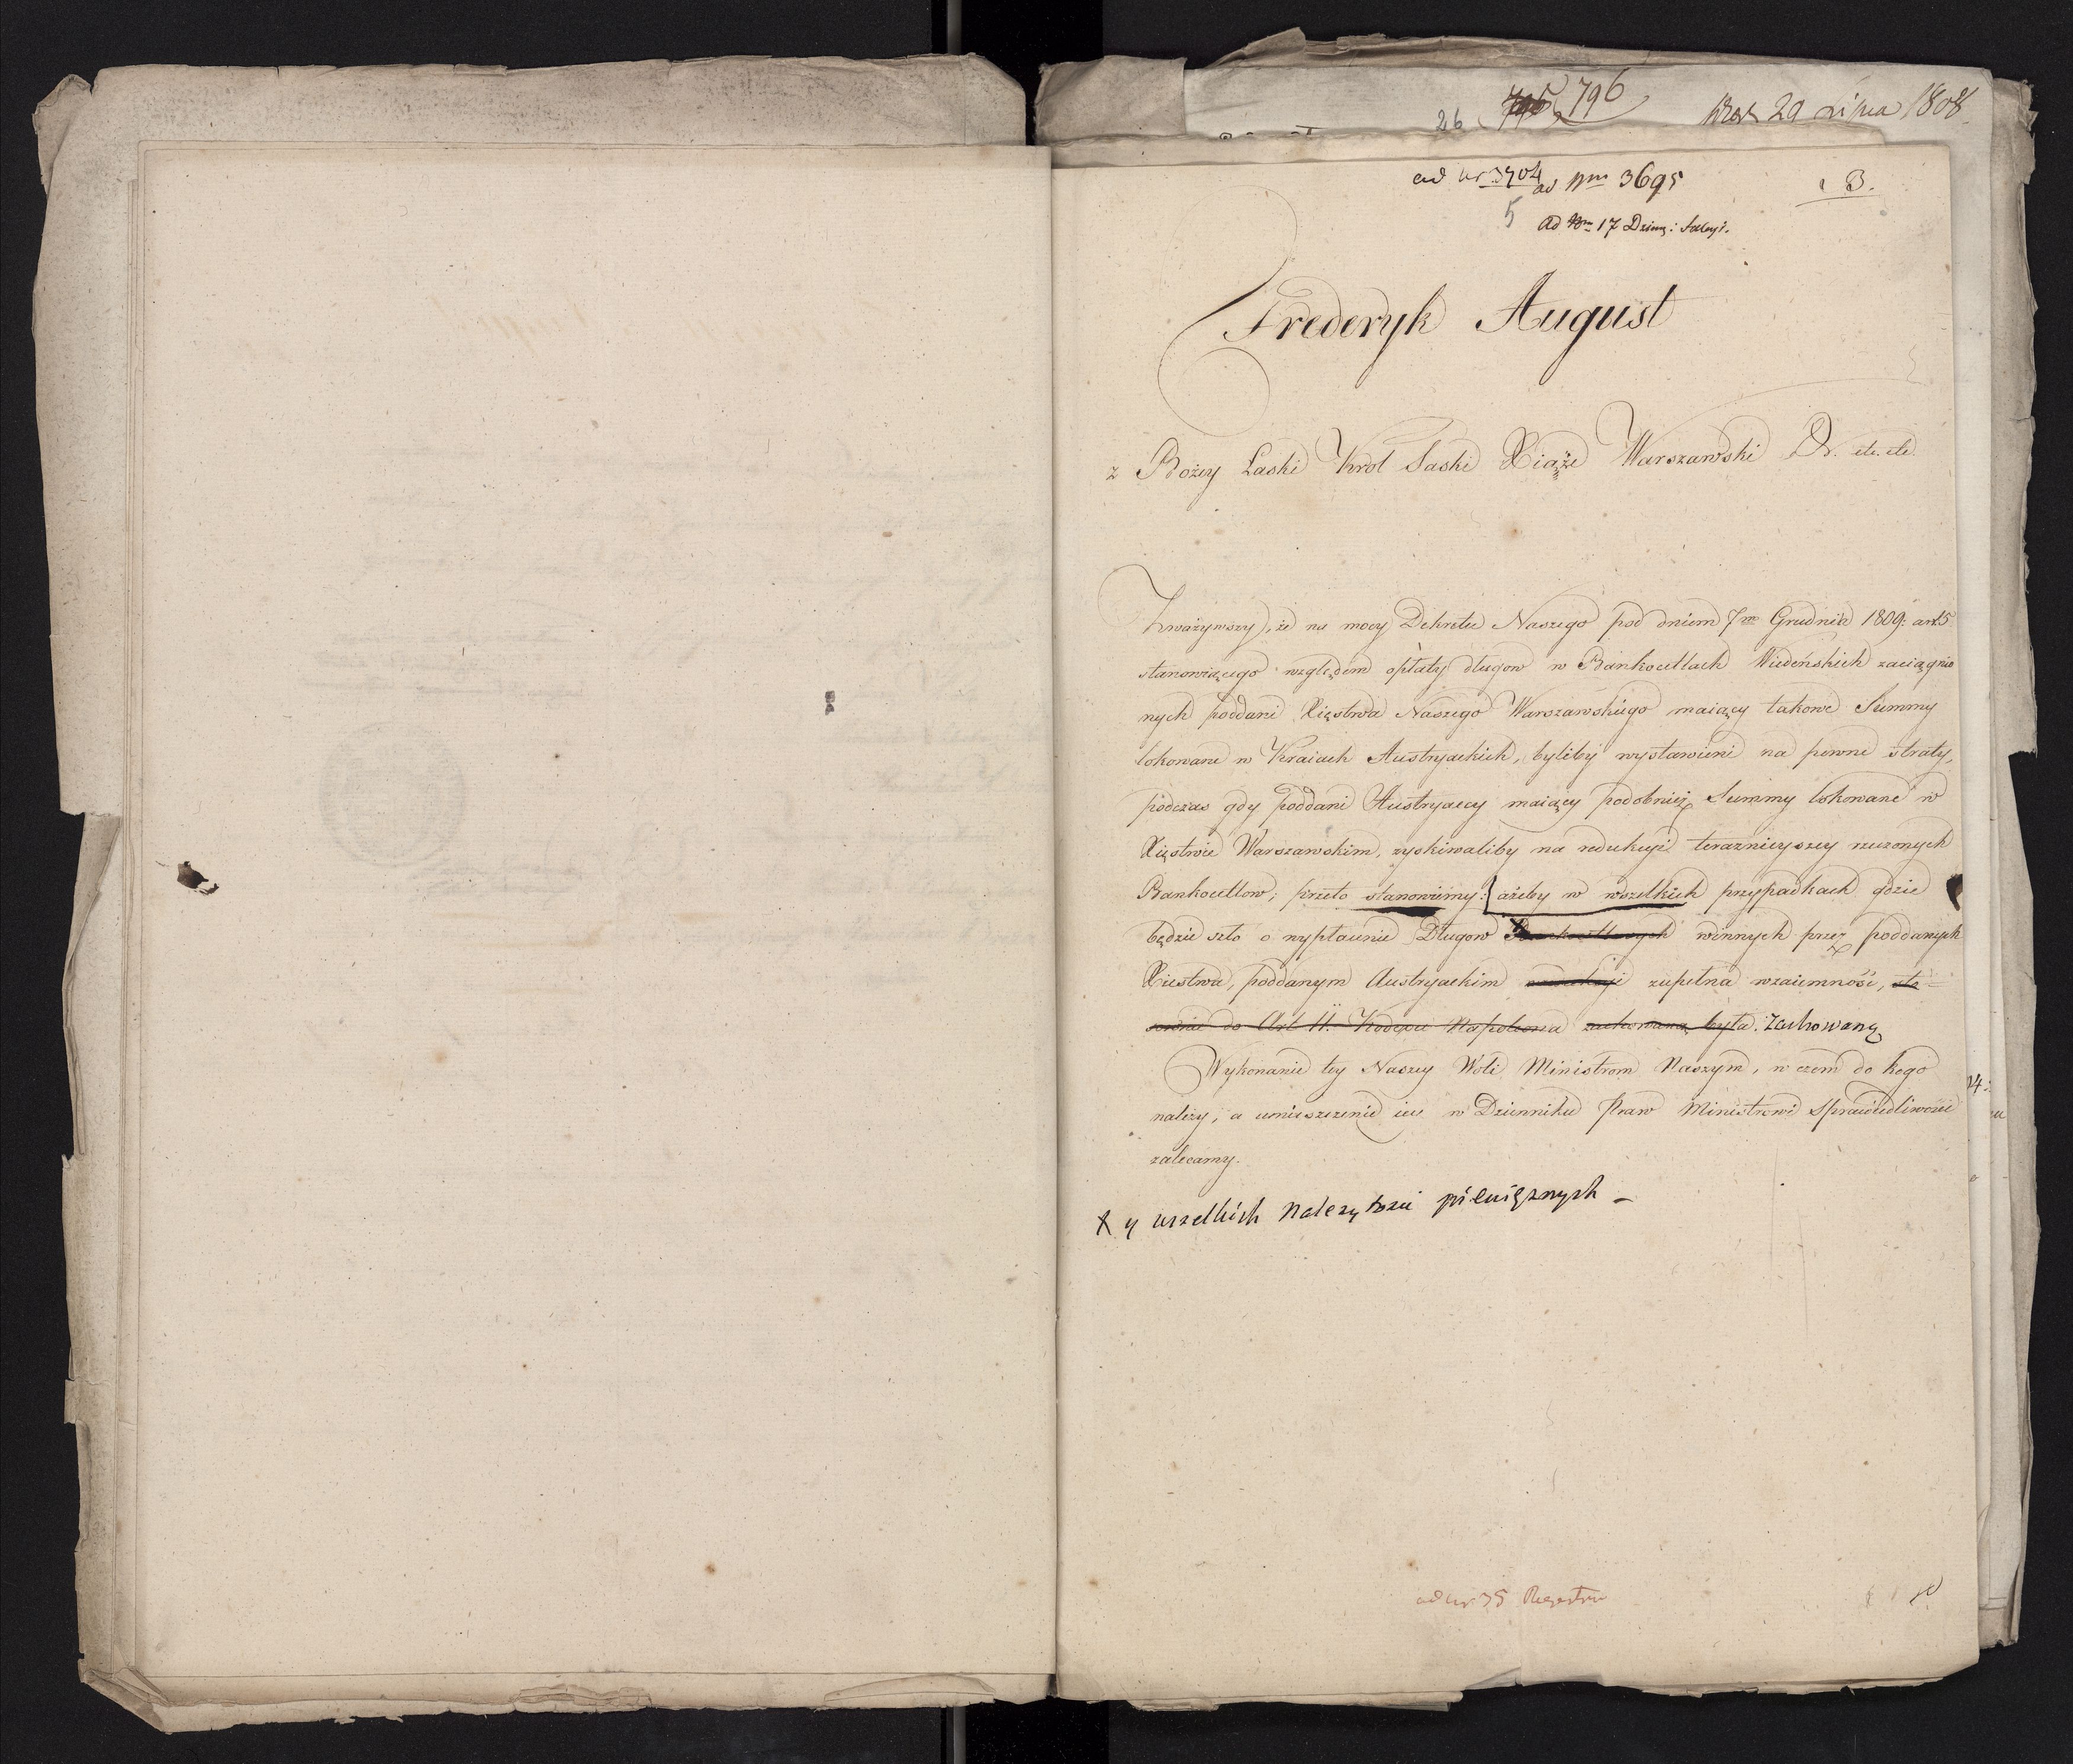 26 796 29 Lipca 1808
ad nr 3704 ad Nrm 3695 B.
5 Ad Nrm 17 Dzien:
Frederyk August
z Bożey Łaski Krol Saski Xiąże Warszawski &. etc. etc.
Zważywszy, że na mocy Dekretu Naszego pod dniem 7m Grudnia 1809. art 5
stanowiącego względem opłaty długow w Bankocetlach Wiedeńskich zaciągnio
nych poddani Xięstwa Naszego Warszawskiego maiący takowe Summy
lokowane w Kraiach Austryackich, byliby wystawieni na pewne straty,
podczas gdy poddani Austryaccy maiący podobnież Summy lokowane w
Xięstwie Warszawskim, zyskiwaliby na redukcyi teraznieyszey rzeczonych
Bankocetlow; przeto stanowiemy: ażeby w wszelkich przypadkach gdzie
będzie szło o wypłacenie Długow X Bankocetlowych winnych przez poddanych
Xiestwa, poddanym Austryackim zupełna wzaiemność, sto=
sownie do Art 11. Kodexu Napoleona zachowaną była. Zachowaną
Wykonanie tey Naszey Woli Ministrom Naszym, w czem do kogo
należy, a umieszczenie iey w Dzienniku Praw Ministrowi Sprawiedliwości
zalecamy.
X y wszelkich Należytości pieniężnych –
ad nr 35 Regestru